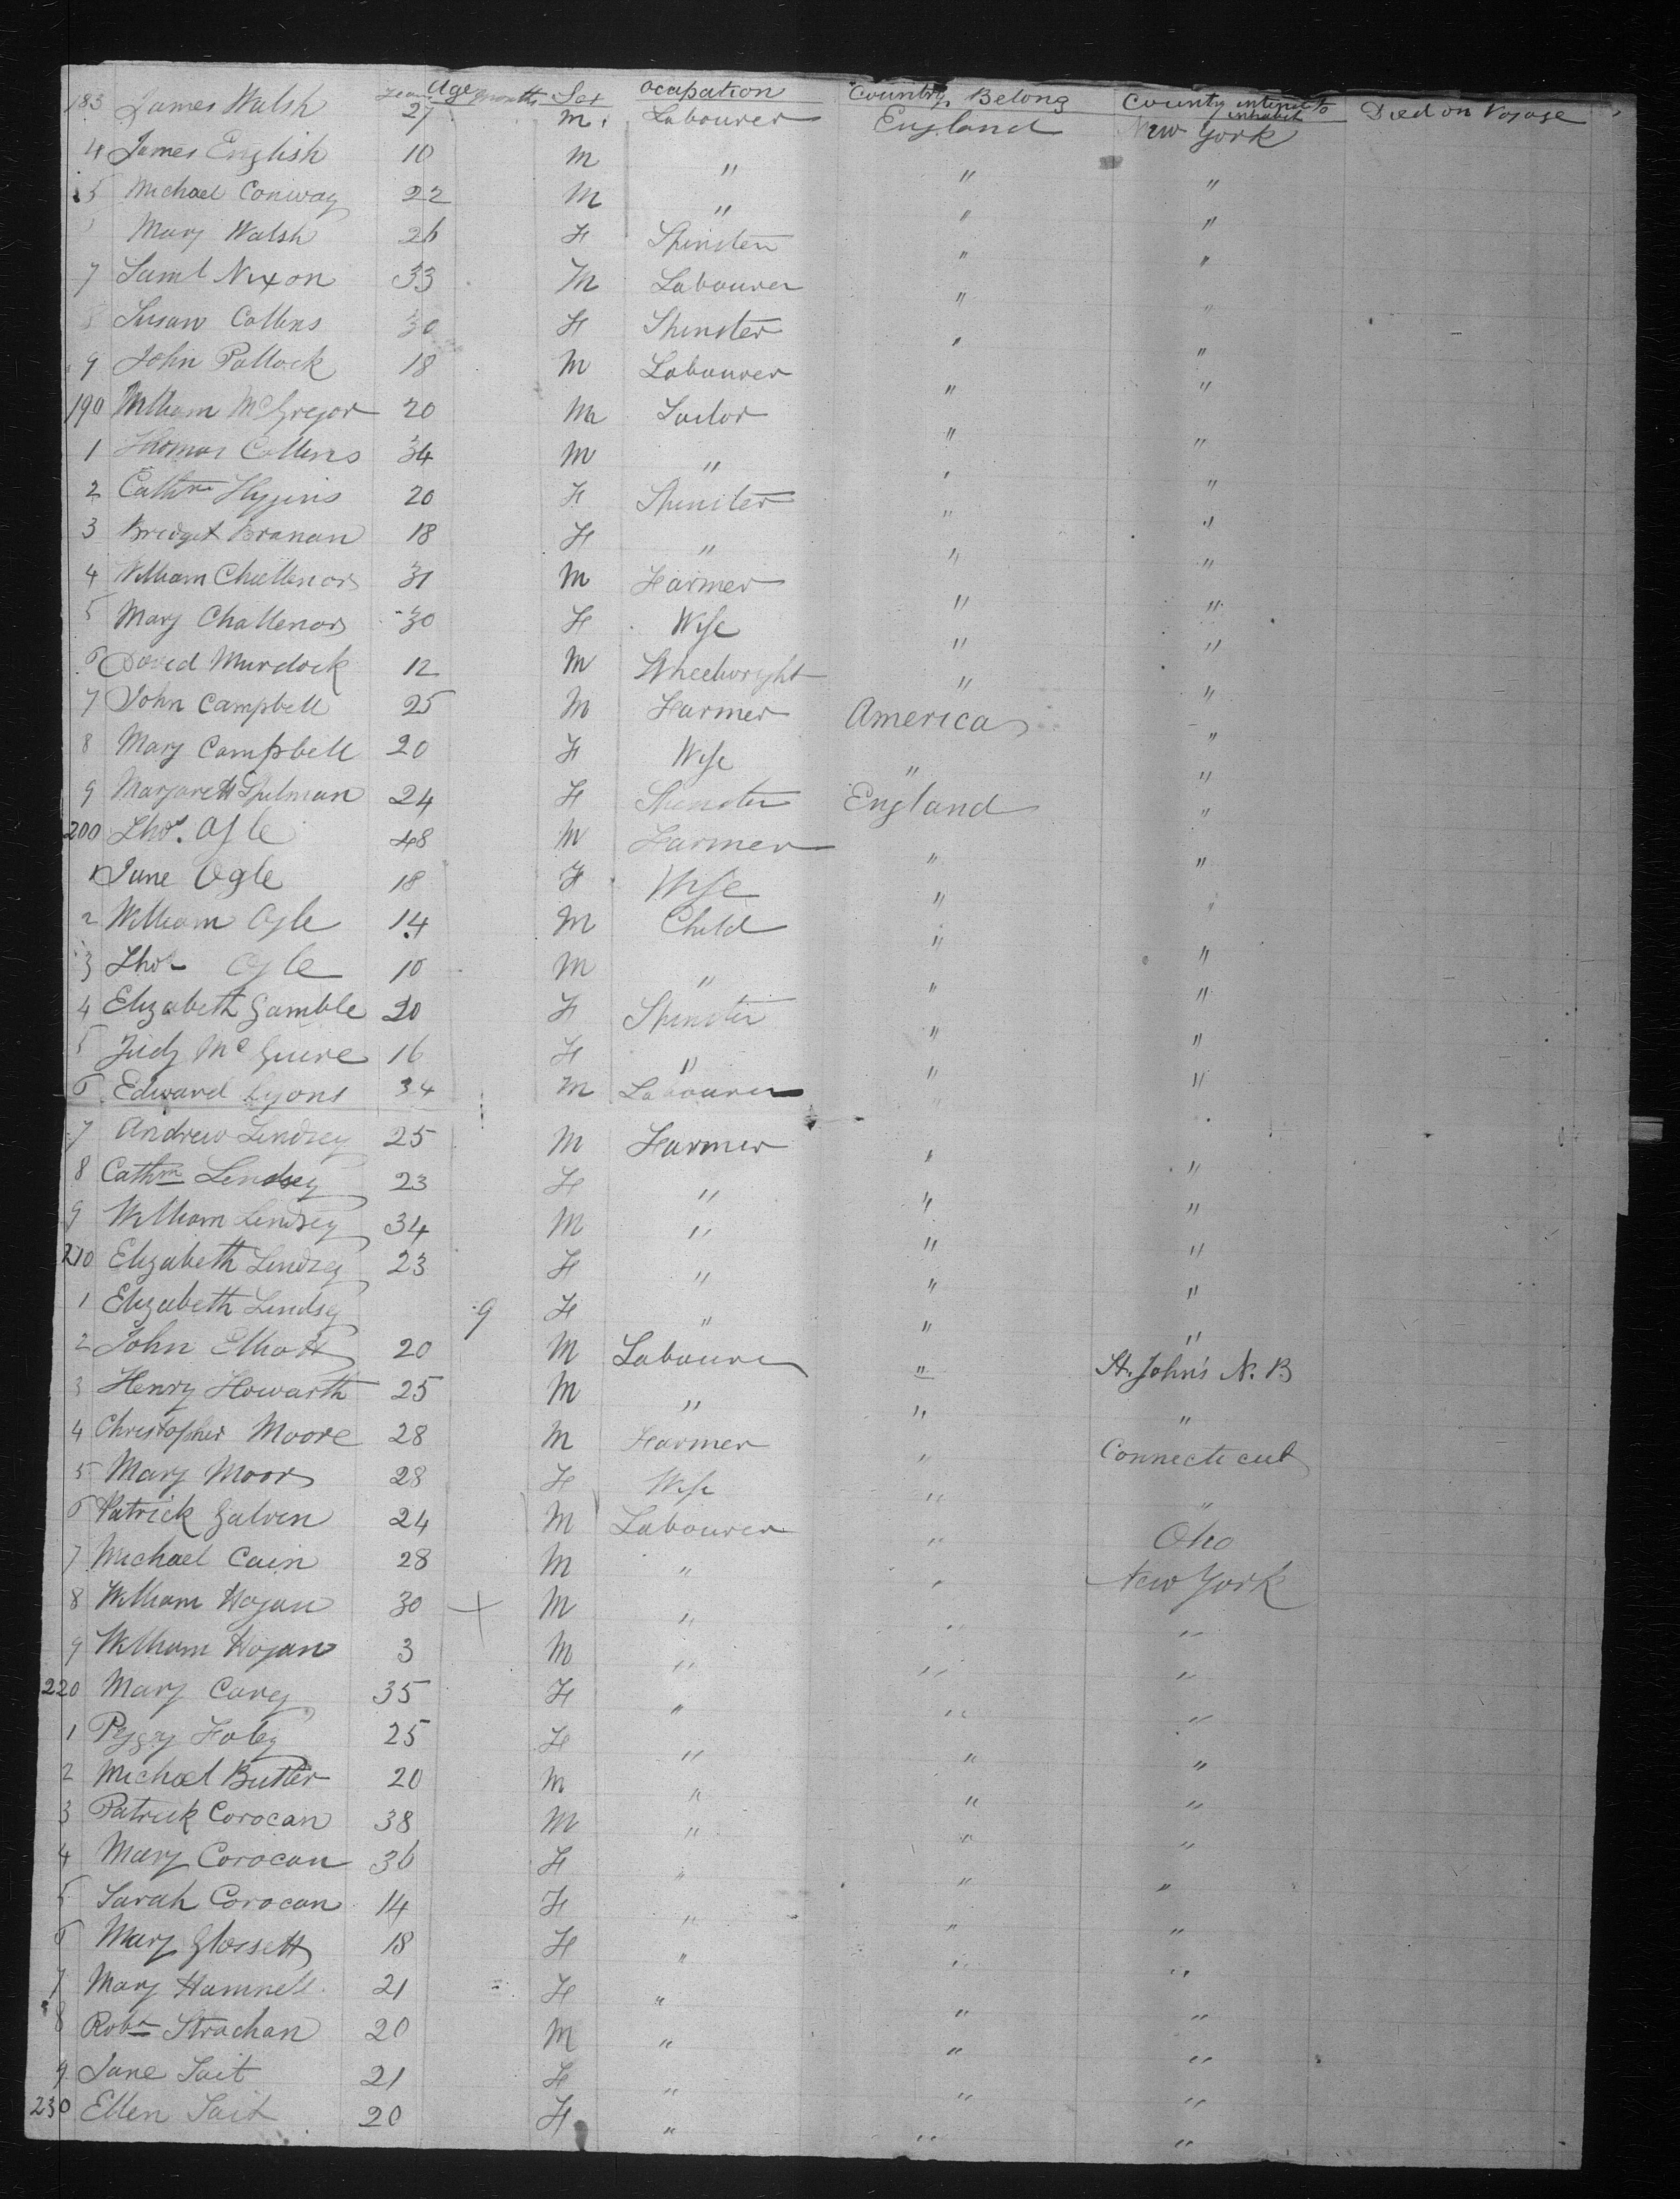 Years Age Months Sex Ocupation Country Belong County intend to inhabit Died on Voyage
183 James Walsh 27 M. Labourer England New York
4 James English 10 M " " "
5 Michael Conway 22 M " " "
Mary Walsh 26 F Spinster " "
7 Saml Nixon 33 M Labourer " "
8 Susan Collins 30 F Spinster " "
9 John Pollock 18 M Labourer " "
190 William McGregor 20 M Tailor " "
1 Thomas Collins 34 M " " "
2 Cathne Higgins 20 F Spinster " "
3 Bridget Branan 18 F " " "
4 William Challenor 31 M Farmer " "
5 Mary Challenor 30 F Wife " "
6 David Murdock 12 M Wheelwright " "
7 John Campbell 25 M Farmer America "
8 Mary Campbell 20 F Wife " "
9 Margarett Spilman 24 F Spinster England "
200 Thos. Ogle 48 M Farmer " "
1 Jane Ogle 18 F Wife " "
2 William Ogle 14 M Child " "
3 Thos Ogle 10 M " " "
4 Elizabeth Gamble 20 F Spinster " "
5 Judy McGuire 16 F " " "
6 Edward Lyons 34 M Labourer " "
7 Andrew Lindsey 25 M Farmer " "
8 Cathn Lindsey 23 F " " "
9 William Lindsey 34 M " " "
210 Elizabeth Lindsey 23 F " " "
1 Elizabeth Lindsey 9 F " " "
2 John Elliott 20 M Labourer " St. John's N. B
3 Henry Howarth 25 M " " "
4 Christopher Moore 28 M Farmer " Connecticut
5 Mary Moor 28 F Wife " "
6 Patrick Galven 24 M Labourer " Ohio
7 Michael Cain 28 M " " New York
8 William Hogan 30 M " " "
9 William Hogan 3 M " " "
220 Mary Carey 35 F " " "
1 Peggy Foley 25 F " " "
2 Michael Butler 20 M " " "
3 Patrick Corocan 38 M " " "
4 Mary Corocan 36 F " " "
5 Sarah Corocan 14 F " " "
6 Mary Glossett 18 F " " "
7 Mary Hamnell 21 F " " "
8 Robt Strachan 20 M " " "
9 Jane Tait 21 F " " "
230 Ellen Tait 20 F " " "